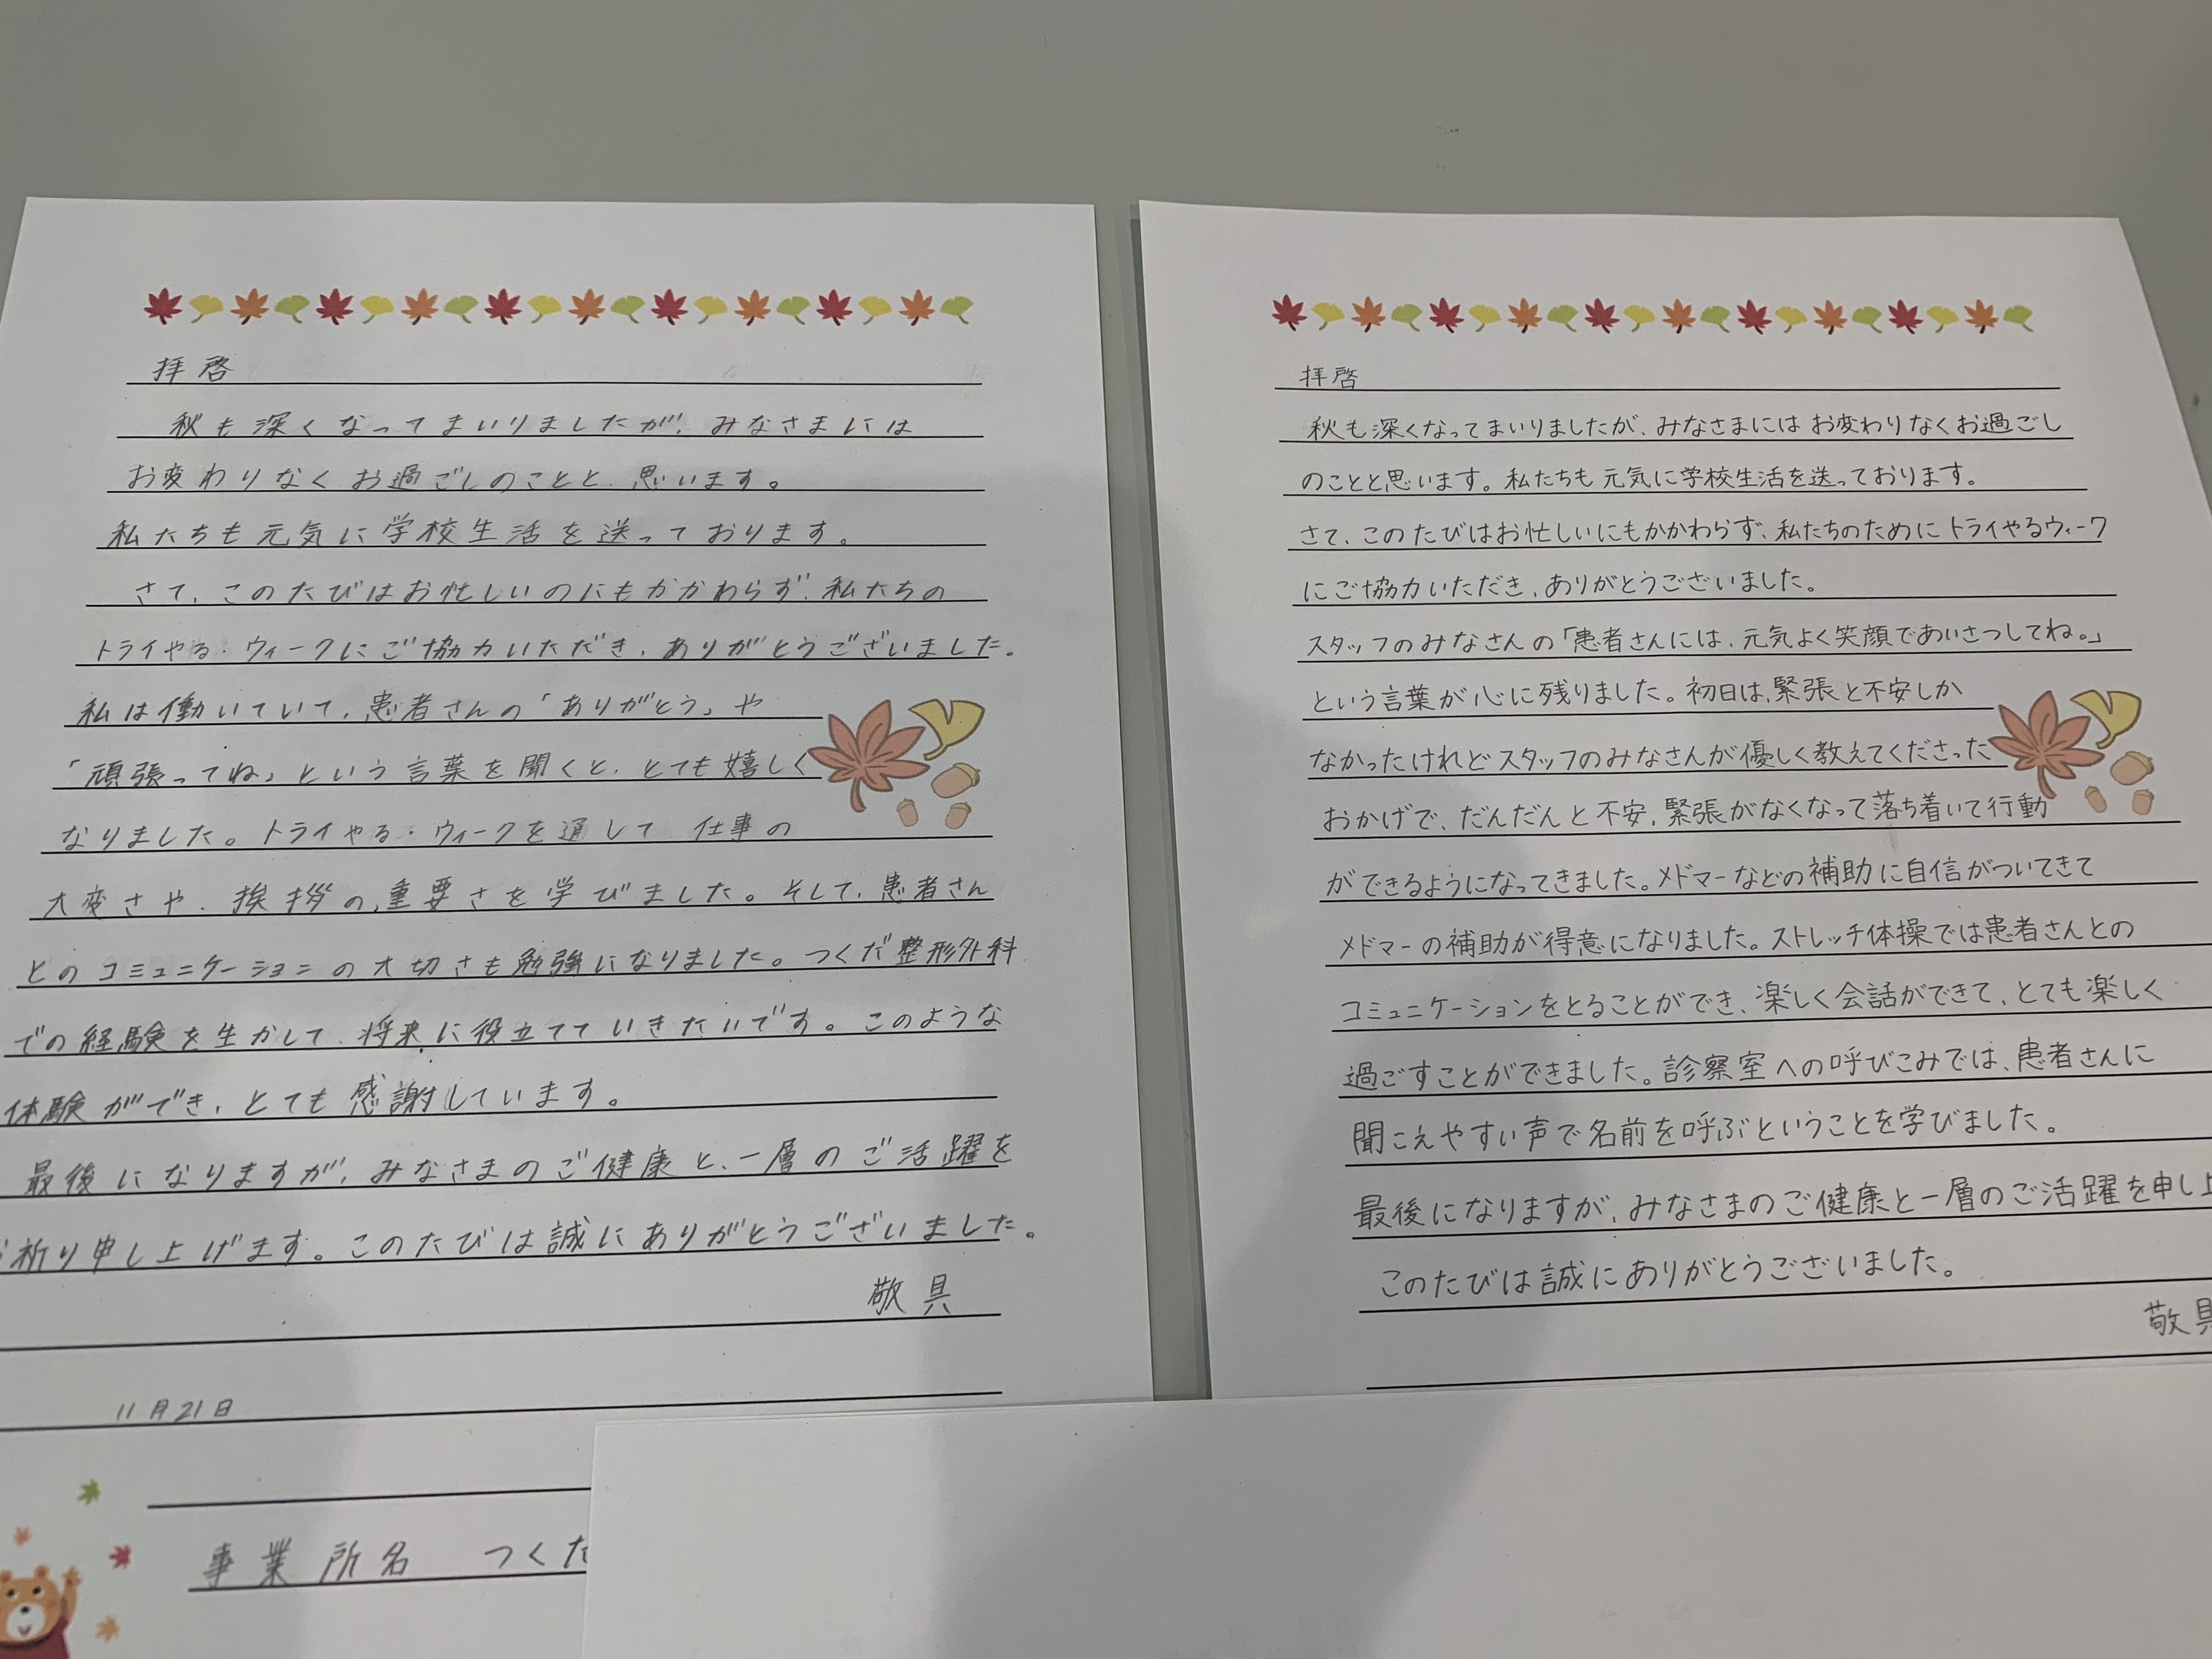 拝啓
秋も深くなってまいりましたが、みなさまには
お変わりなくお過ごしのことと、思います。
私たちも元気に学校生活を送っております。
さて、このたびはお忙しいのにもかかわらず、私たちの
トライやる・ウィークにご協力いただき、ありがとうございました。
私は働いていて、患者さんの「ありがとう」や
「頑張ってね」という言葉を聞くと、とても嬉しく
なりました。トライやる・ウィークを通して 仕事の
大変さや、挨拶の、重要さを学びました。そして、患者さん
とのコミュニケーションの大切さも勉強になりました。つくだ整形外科
での経験を生かして、将来に役立てていきたいです。このような
体験ができ、とても感謝しています。
最後になりますが、みなさまのご健康と、一層のご活躍を
祈り申し上げます。このたびは誠にありがとうございました。
敬具
11月21日
事業所名 つくだ
拝啓
秋も深くなってまいりましたが、みなさまにはお変わりなくお過ごし
のことと思います。私たちも元気に学校生活を送っております。
さて、このたびはお忙しいにもかかわらず、私たちのためにトライやるウィーク
にご協力いただき、ありがとうございました。
スタッフのみなさんの「患者さんには、元気よく笑顔であいさつしてね。」
という言葉が心に残りました。初日は、緊張と不安しか
なかったけれどスタッフのみなさんが優しく教えてくださった
おかげで、だんだんと不安、緊張がなくなって落ち着いて行動
ができるようになってきました。メドマーなどの補助に自信がついてきて
メドマーの補助が得意になりました。ストレッチ体操では患者さんとの
コミュニケーションをとることができ、楽しく会話ができて、とても楽しく
過ごすことができました。診察室への呼びこみでは、患者さんに
聞こえやすい声で名前を呼ぶということを学びました。
最後になりますが、みなさまのご健康と一層のご活躍を申し上
このたびは誠にありがとうございました。
敬具